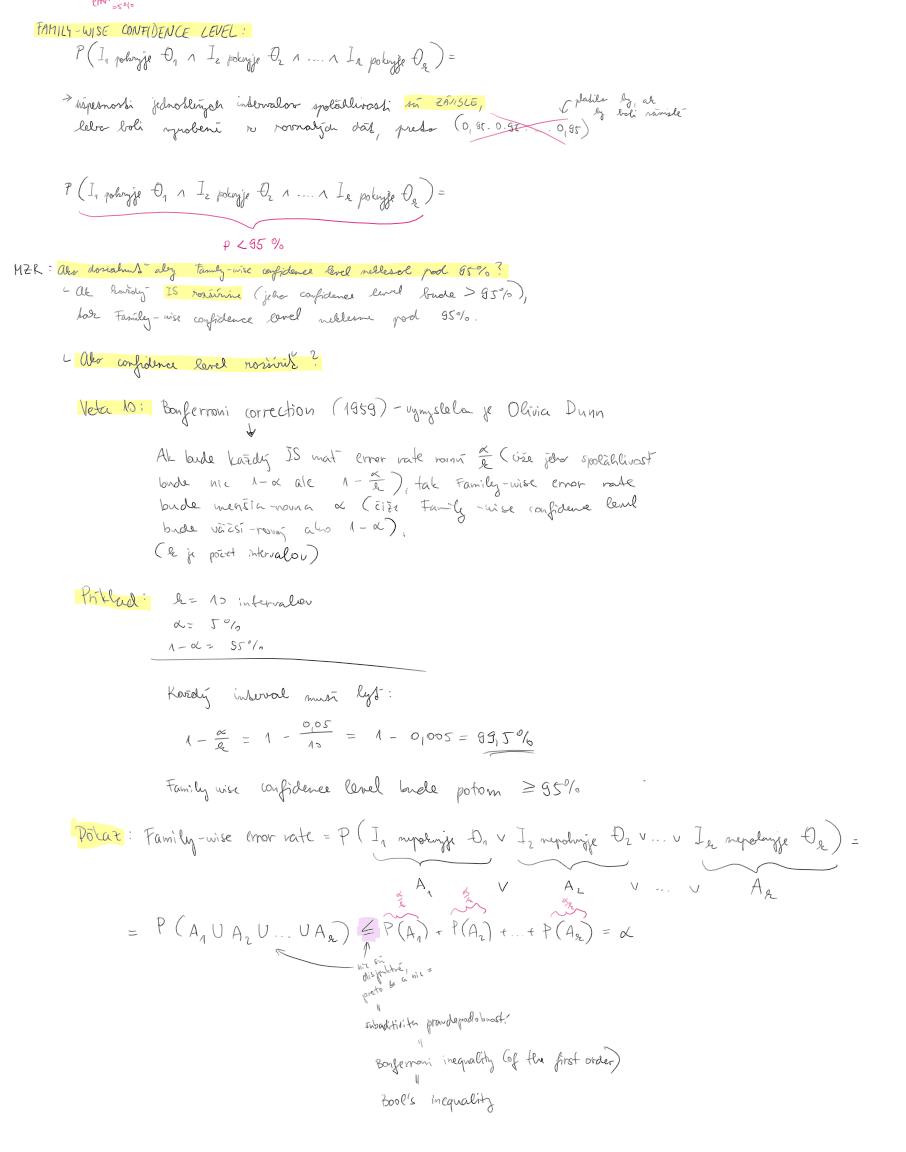 error
=5%
FAMILY-WISE CONFIDENCE LEVEL:
P(I₁ pokryje Θ₁ ∧ I₂ pokryje Θ₂ ∧ .... ∧ Iₖ pokryje Θₖ) =
→ úspešnosti jednotlivých intervalov spoľahlivosti sú ZÁVISLÉ,
lebo boli vyrobené z rovnakých dát, preto (0,95 · 0.95 · ... · 0,95)
platilo by, ak
by boli nezávislé
P(I₁ pokryje Θ₁ ∧ I₂ pokryje Θ₂ ∧ .... ∧ Iₖ pokryje Θₖ) =
P < 95 %
MZR: Ako dosiahnuť aby family-wise confidence level neklesol pod 95%?
↳ Ak každý IS rozšírime (jeho confidence level bude > 95%),
tak Family-wise confidence level neklesne pod 95%.
↳ Ako confidence level rozšíriť?
Veta 10: Bonferroni correction (1959) - vymyslela je Olivia Dunn
↓
Ak bude každý IS mať error rate rovnú α/k (čiže jeho spoľahlivosť
bude nie 1-α ale 1 - α/k), tak Family-wise error rate
bude menšia-rovná α (čiže Family-wise confidence level
bude väčší-rovný ako 1-α).
(k je počet intervalov)
Príklad: k = 10 intervalov
α = 5%
1-α = 95%
Každý interval musí byť:
1 - α/k = 1 - 0,05/10 = 1 - 0,005 = 99,5%
Family wise confidence level bude potom ≥ 95%
Dôkaz: Family-wise error rate = P(I₁ nepokryje Θ₁ ∨ I₂ nepokryje Θ₂ ∨ ... ∨ Iₖ nepokryje Θₖ) =
A₁ ∨ A₂ ∨ ... ∨ Aₖ
α/k α/k α/k
= P(A₁ ∪ A₂ ∪ ... ∪ Aₖ) ≤ P(A₁) + P(A₂) + ... + P(Aₖ) = α
nie sú
disjunktné,
preto ≤ a nie =
=
subaditivita pravdepodobnosti
=
Bonferroni inequality (of the first order)
=
Bool's inequality